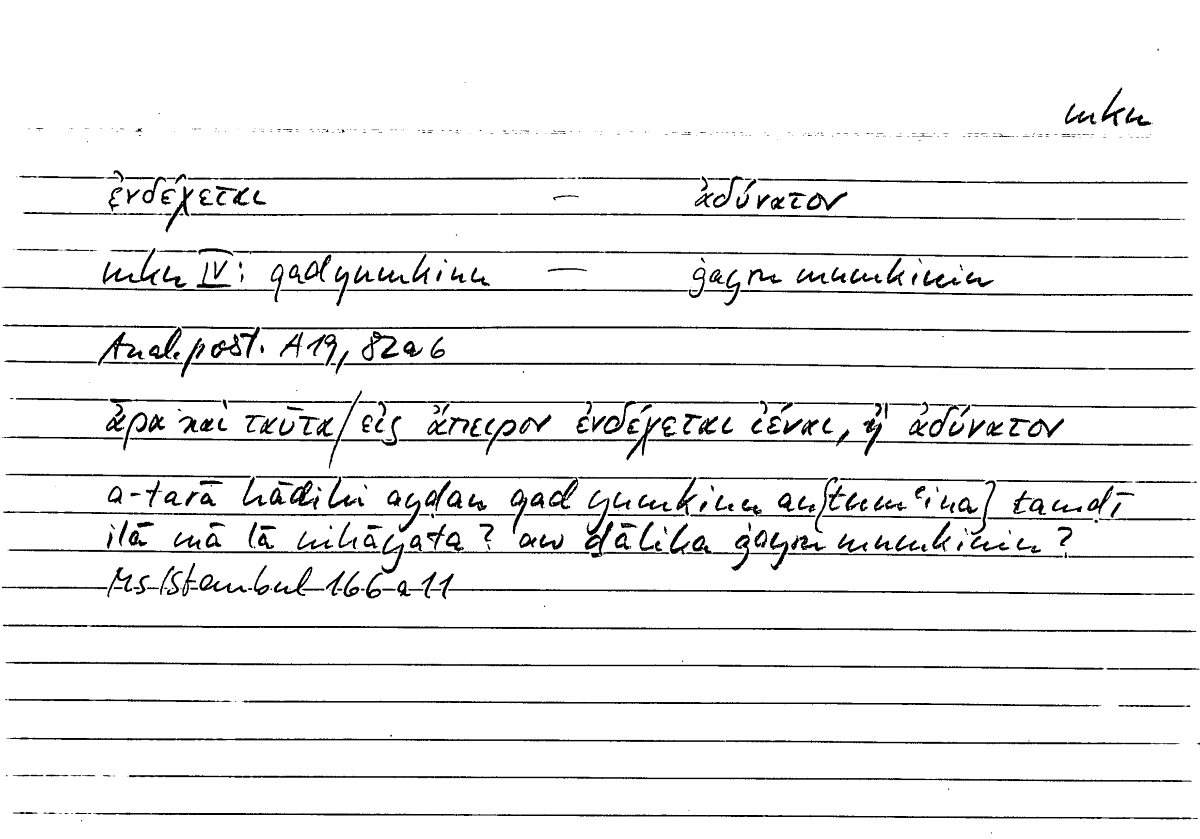 mkn
ἐνδέχεται — ἀδύνατον
mkn IV: qad yumkinu — ġayru mumkinin
Anal. post. A 19, 82 a 6
ἆρα καὶ ταῦτα/εἰς ἄπειρον ἐνδέχεται ἰέναι, ἢ ἀδύνατον
a-tarā hāḏihi ayḍan qad yumkinu an {tumʿina} tamḍī
ilā mā lā nihāyata? aw ḏālika ġayru mumkinin?
Ms Istanbul 166 a 11